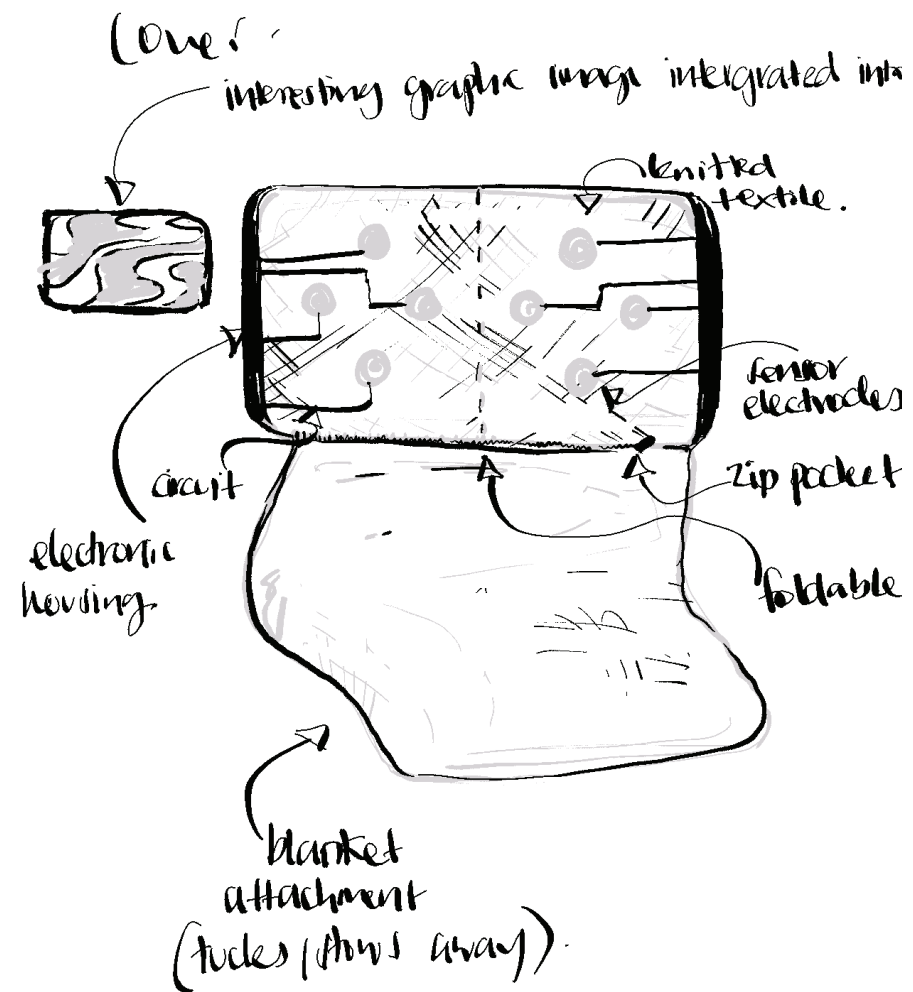 Cover
interesting graphic image intergrated into
knitted
textile.
sensor
electrodes
circuit
zip pocket
electronic
housing.
foldable
blanket
attachment
(tucks / stows away).